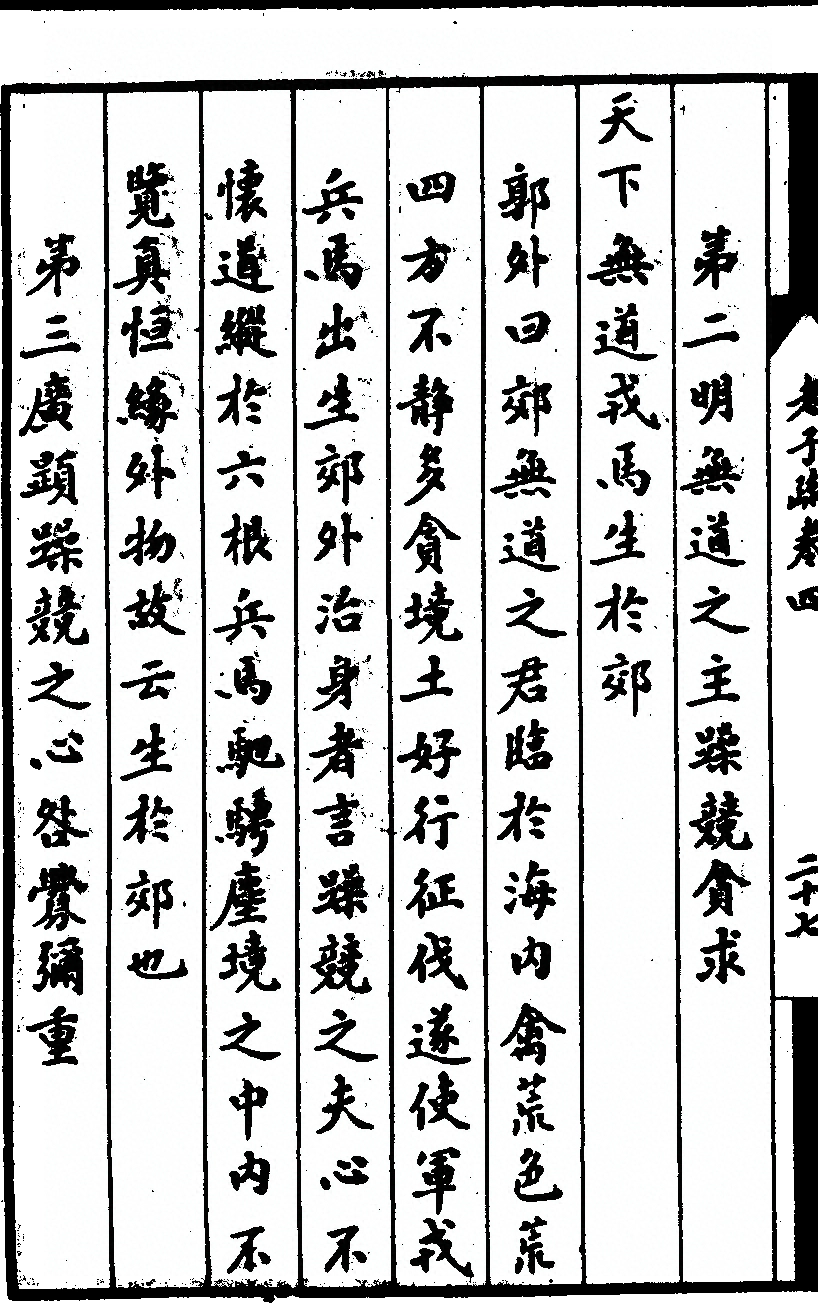 老子疏卷四
二十七
第二明無道之主躁競貪求
天下無道戎馬生於郊
郭外曰郊無道之君臨於海内禽荒色荒
四方不静多貪境土好行征伐遂使軍戎
兵馬出生郊外治身者言躁競之夫心不
懷道縱於六根兵馬馳騁塵境之中内不
覽真恒緣外物故云生於郊也
第三廣顕躁競之心咎釁彌重